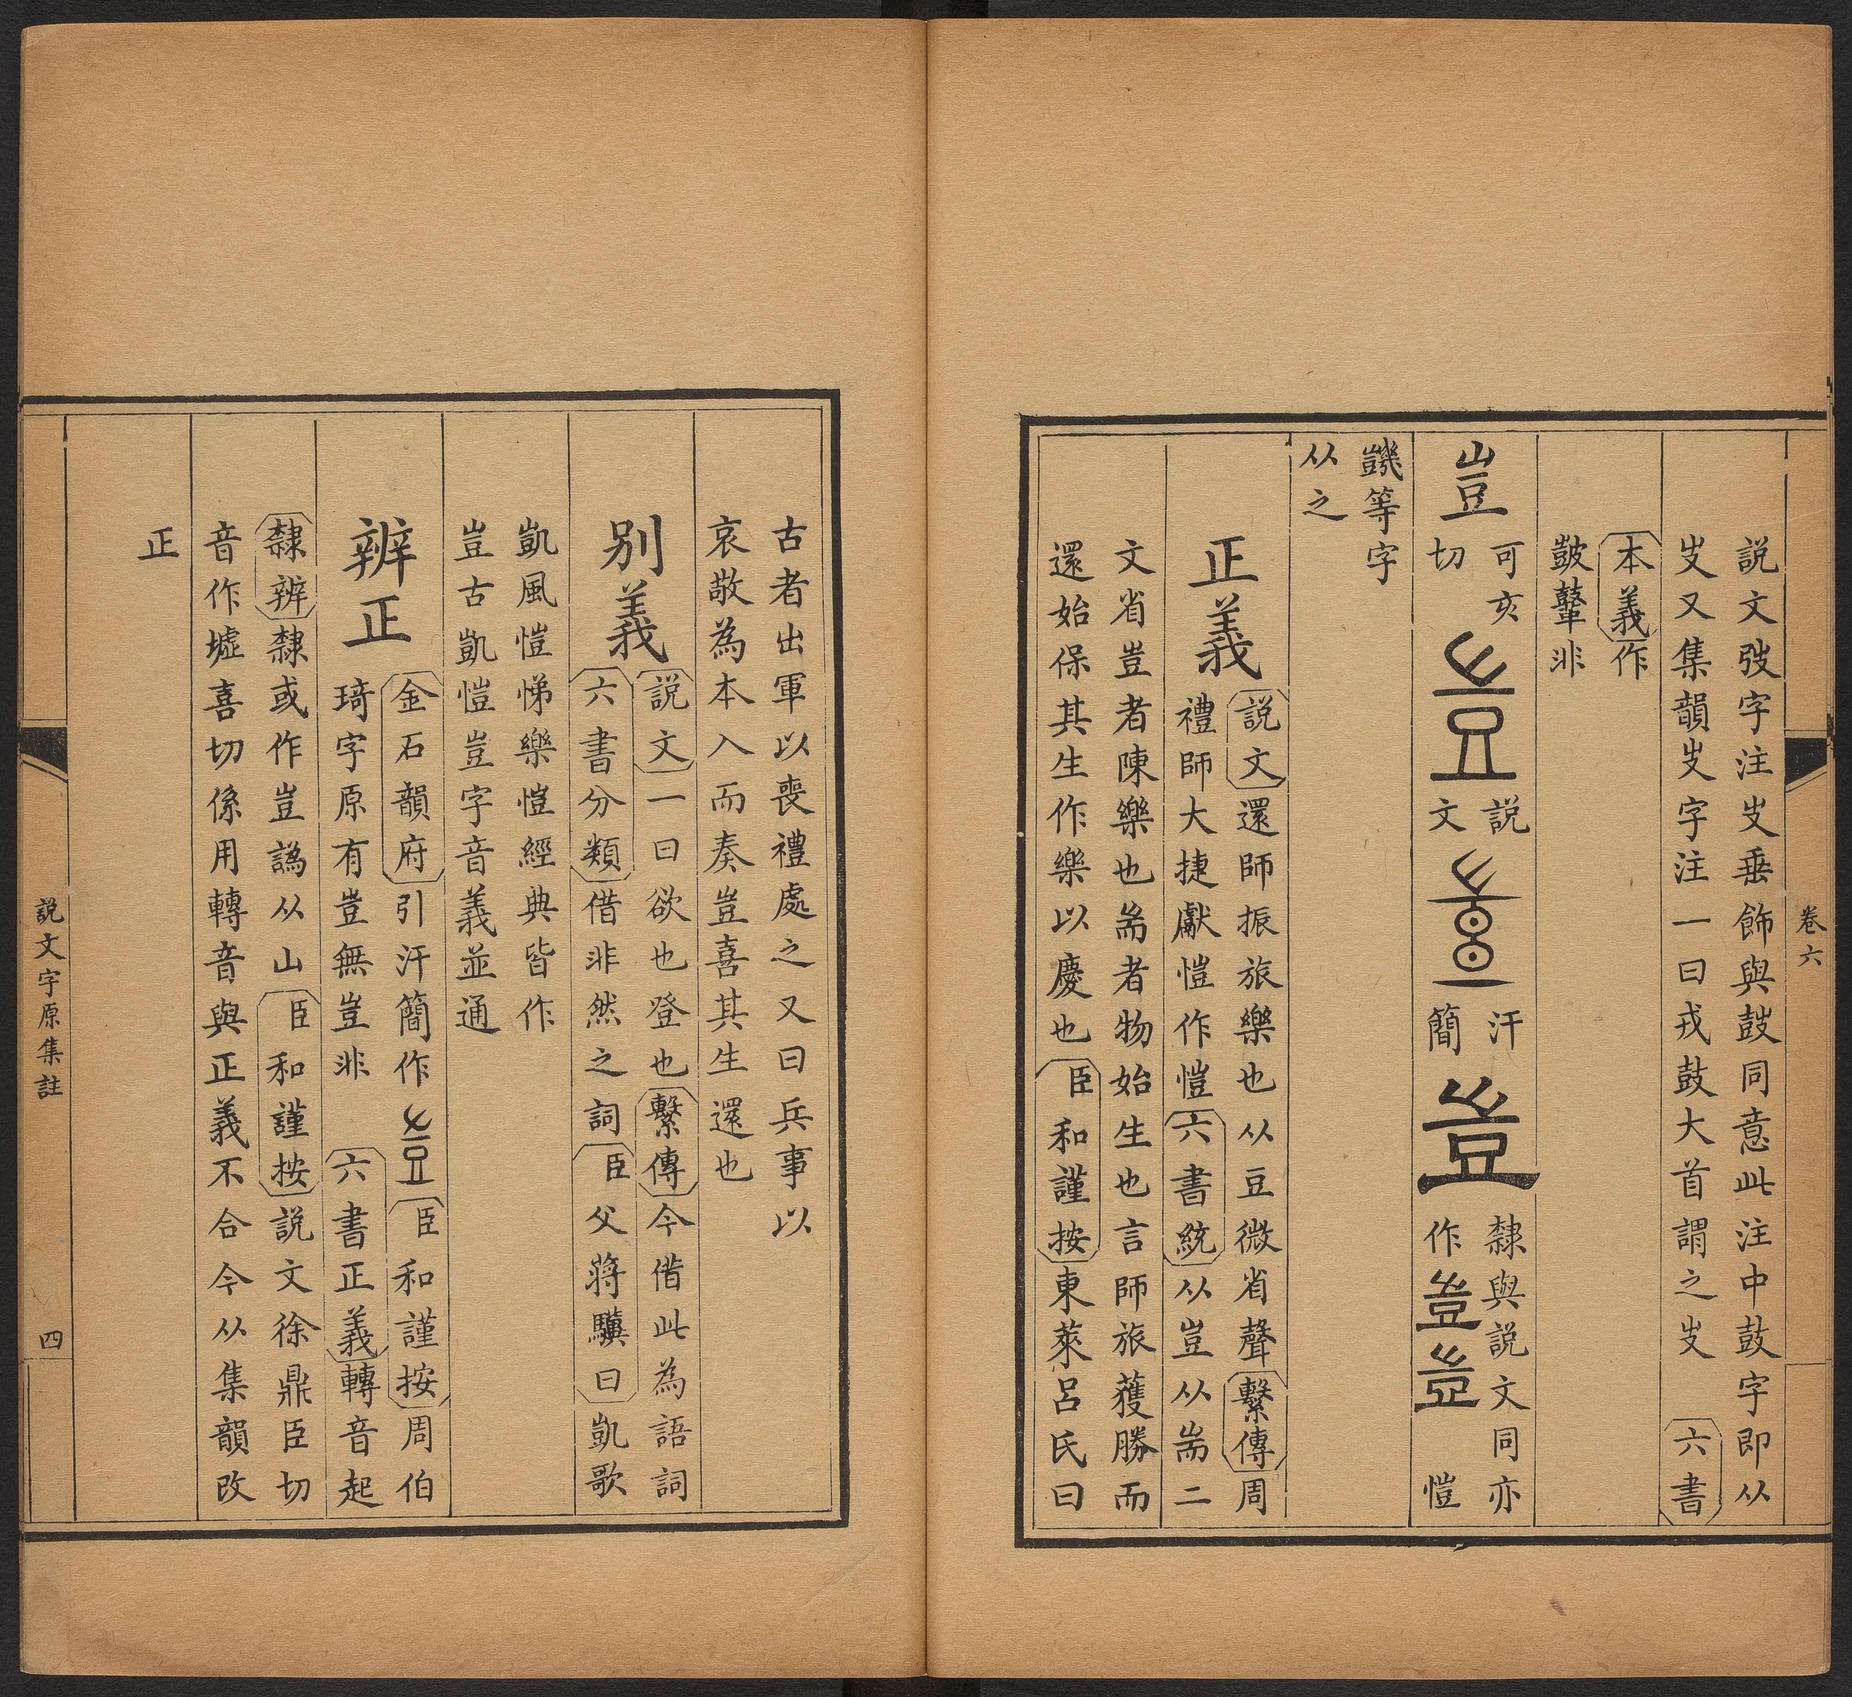 卷六
說文弢字注㞢垂飾與鼓同意此注中鼓字即从
㞢又集韻㞢字注一曰戎鼓大首謂之㞢 六書
本義作
鼓鼙非
豈
可亥
切
說
文
汗
簡
隸與說文同亦
作
愷
䜁等字
从之
正義
說文還師振旅樂也从豆微省聲繫傳周
禮師大捷獻愷作愷六書統从豈从耑二
文省豈者陳樂也耑者物始生也言師旅獲勝而
還始保其生作樂以慶也臣和謹按東萊呂氏曰
古者出軍以喪禮處之又曰兵事以
哀敬為本入而奏豈喜其生還也
別義
說文一曰欲也登也繫傳今借此為語詞
六書分類借非然之詞臣父蔣驥曰凱歌
凱風愷悌樂愷經典皆作
豈古凱愷豈字音義並通
辨正
金石韻府引汗簡作
臣和謹按周伯
琦字原有豈無豈非 六書正義轉音起
隸辨隸或作豈譌从山臣和謹按說文徐鼎臣切
音作墟喜切係用轉音與正義不合今从集韻改
正
說文字原集註
四